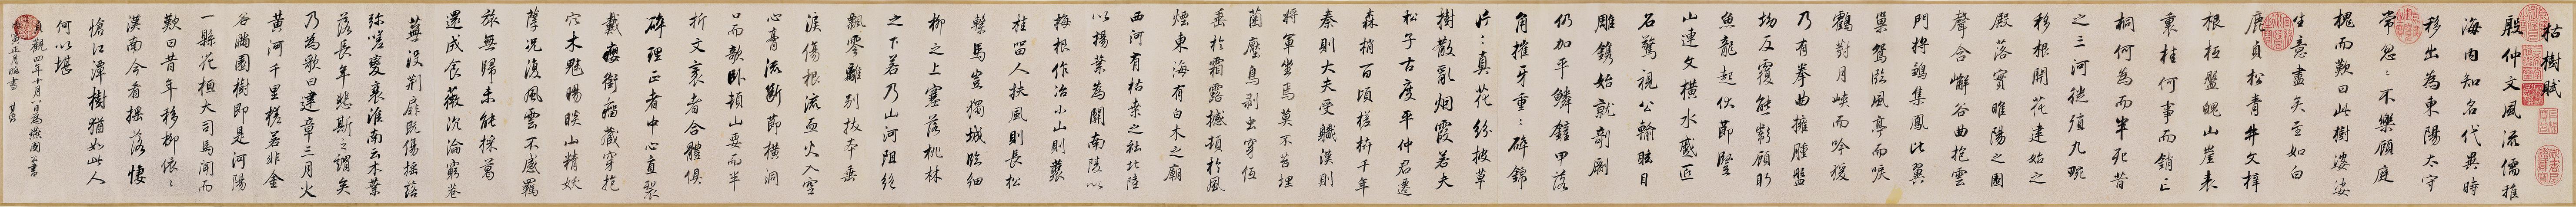 枯樹賦
殷仲文風流儒雅
海内知名代異時
移出為東陽太守
常忽〻不樂顧庭
槐而歎曰此樹婆娑
生意盡矣至如白
鹿貞松青牛文梓
根柢盤魄山崖表
裏桂何事而銷亡
桐何為而半死昔
之三河徙殖九畹
移根開花建始之
殿落實睢陽之園
聲含嶰谷曲抱雲
門將鶵集鳳比翼
巢鴛臨風亭而唳
鶴對月峽而吟猨
乃有拳曲擁腫盤
坳反覆熊彪顧盼
魚龍起伏節竪
山連文橫水蹙匠
石驚視公輸眩目
雕鐫始就剞劂
仍加平鱗鏟甲落
角摧牙重〻碎錦
片〻真花紛披草
樹散亂烟霞若夫
松子古度平仲君遷
森梢百頃槎枿千年
秦則大夫受職漢則
將軍坐焉莫不苔埋
菌壓鳥剥虫穿低
垂於霜露撼頓於風
煙東海有白木之廟
西河有枯桒之社北陸
以揚葉為關南陵以
梅根作冶小山則叢
桂留人扶風則長松
繫馬豈獨城臨細
柳之上塞落桃林
之下若乃山河阻絶
飄零離別拔本垂
淚傷根流血火入空
心膏流斷節橫洞
口而欹卧頓山要而半
折文衺者合體俱
碎理正者中心直裂
戴癭銜瘤藏穿抱
穴木魅睗睒山精妖
孽況復風雲不感羈
旅無歸未能採葛
還成食薇沉淪窮巷
蕪没荆扉既傷摇落
弥嗟變衰淮南云木葉
落長年悲斯之謂矣
乃為歌曰建章三月火
黄河千里槎若非金
谷滿園樹即是河陽
一縣花桓大司馬聞而
歎曰昔年移柳依〻
漢南今看摇落悽
愴江潭樹猶如此人
何以堪
貞觀四年十月八日為燕國公書
寅正月臨書